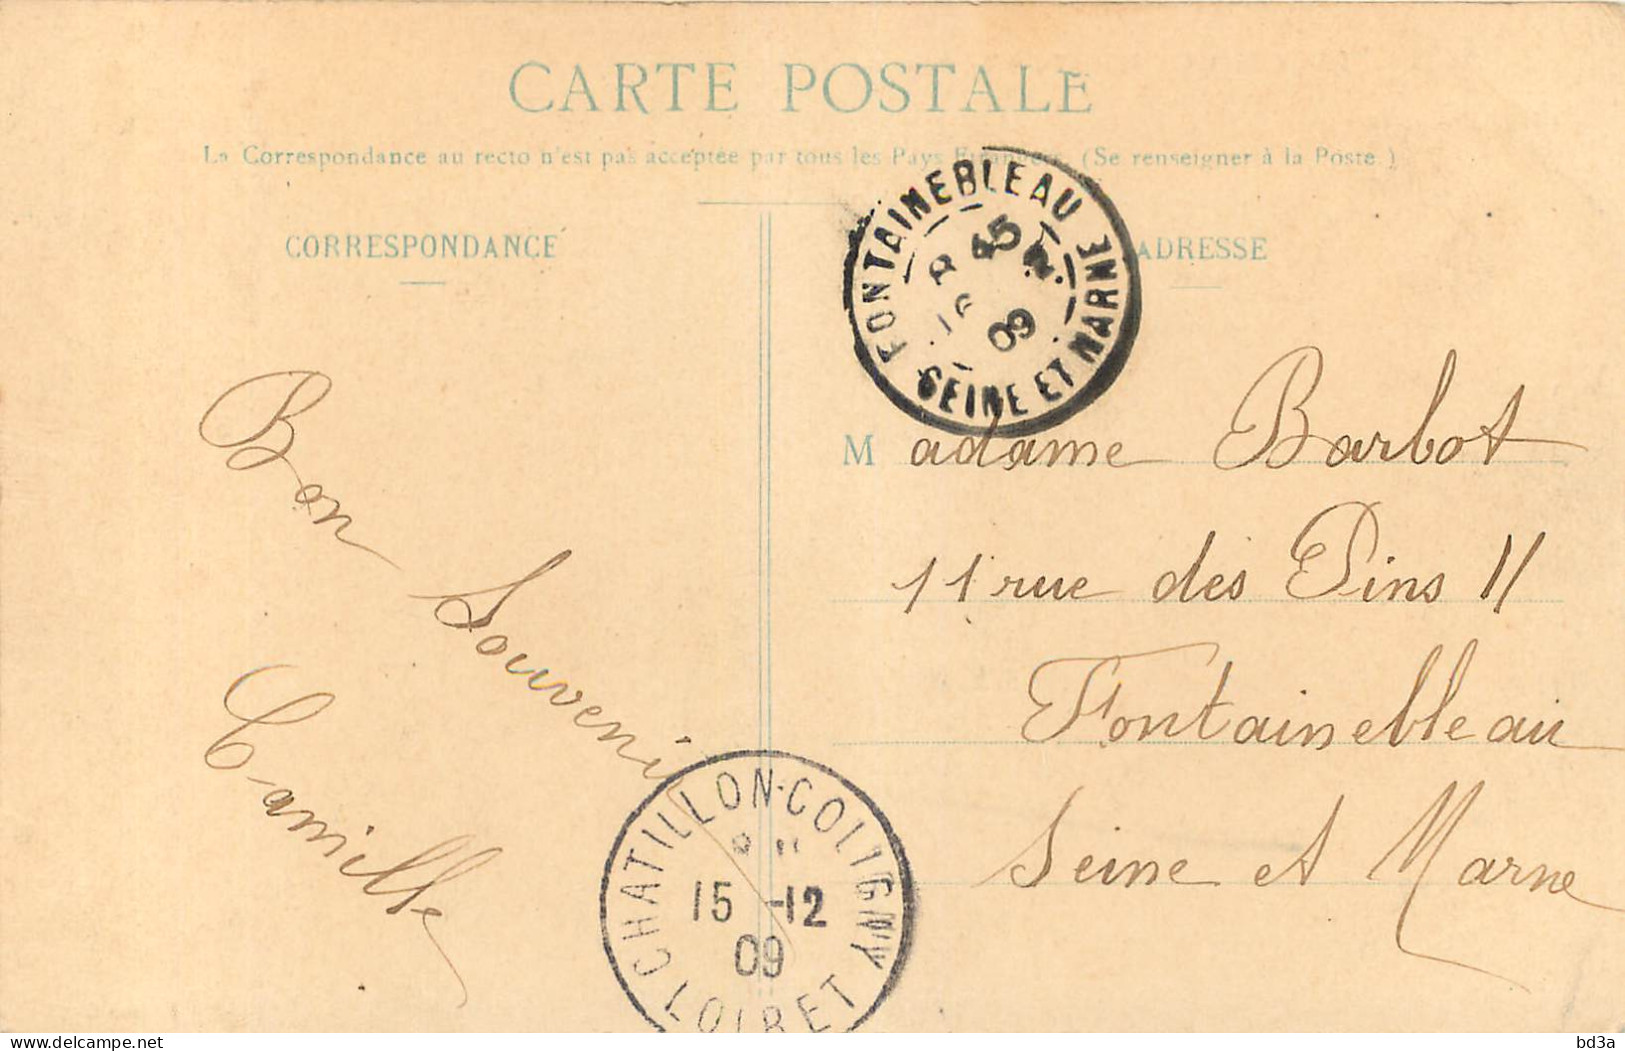 CARTE POSTALE
La Correspondance au recto n'est pas acceptée par tous les Pays Etrangers. (Se renseigner à la Poste.)
CORRESPONDANCE
ADRESSE
FONTAINEBLEAU
45
09
SEINE ET MARNE
Bon Souvenir
Camille
Madame Barbot
11 rue des Pins 11
Fontainebleau
Seine et Marne
CHATILLON-COLIGNY
15 -12
09
LOIRET
delcampe.net
bd3a